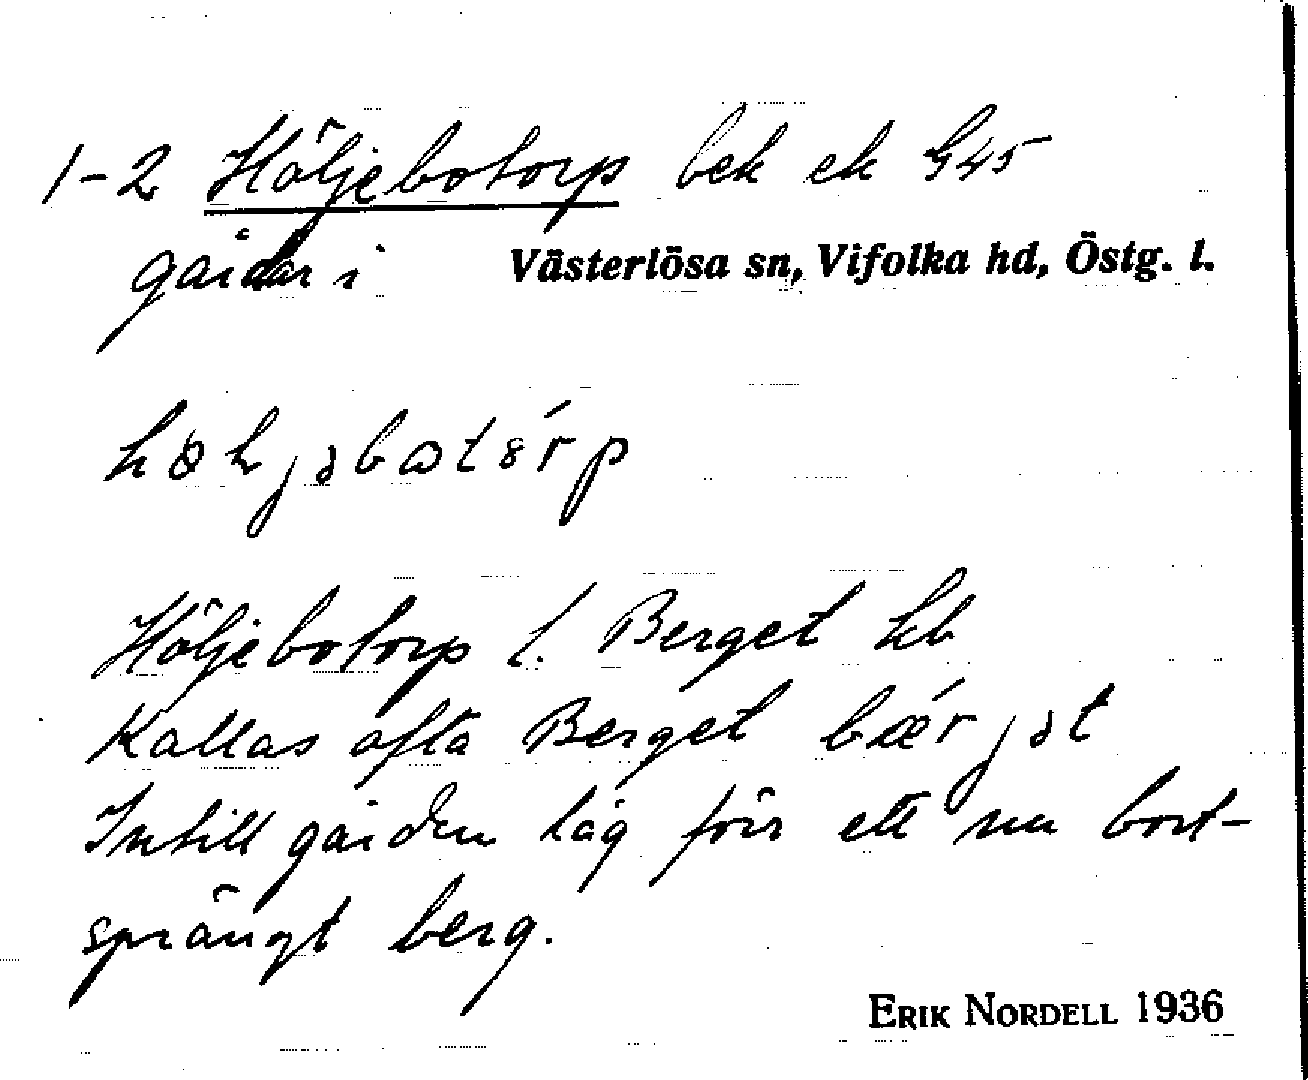 1-2 Höljebotorp bek ek G45
gårdar i Västerlösa sn, Vifolka hd, Östg. l.
Höljebotorp l. Berget kb
Kallas ofta Berget bærjət
Intill gården låg förr ett nu bort-
sprängt berg.
ERIK NORDELL 1936